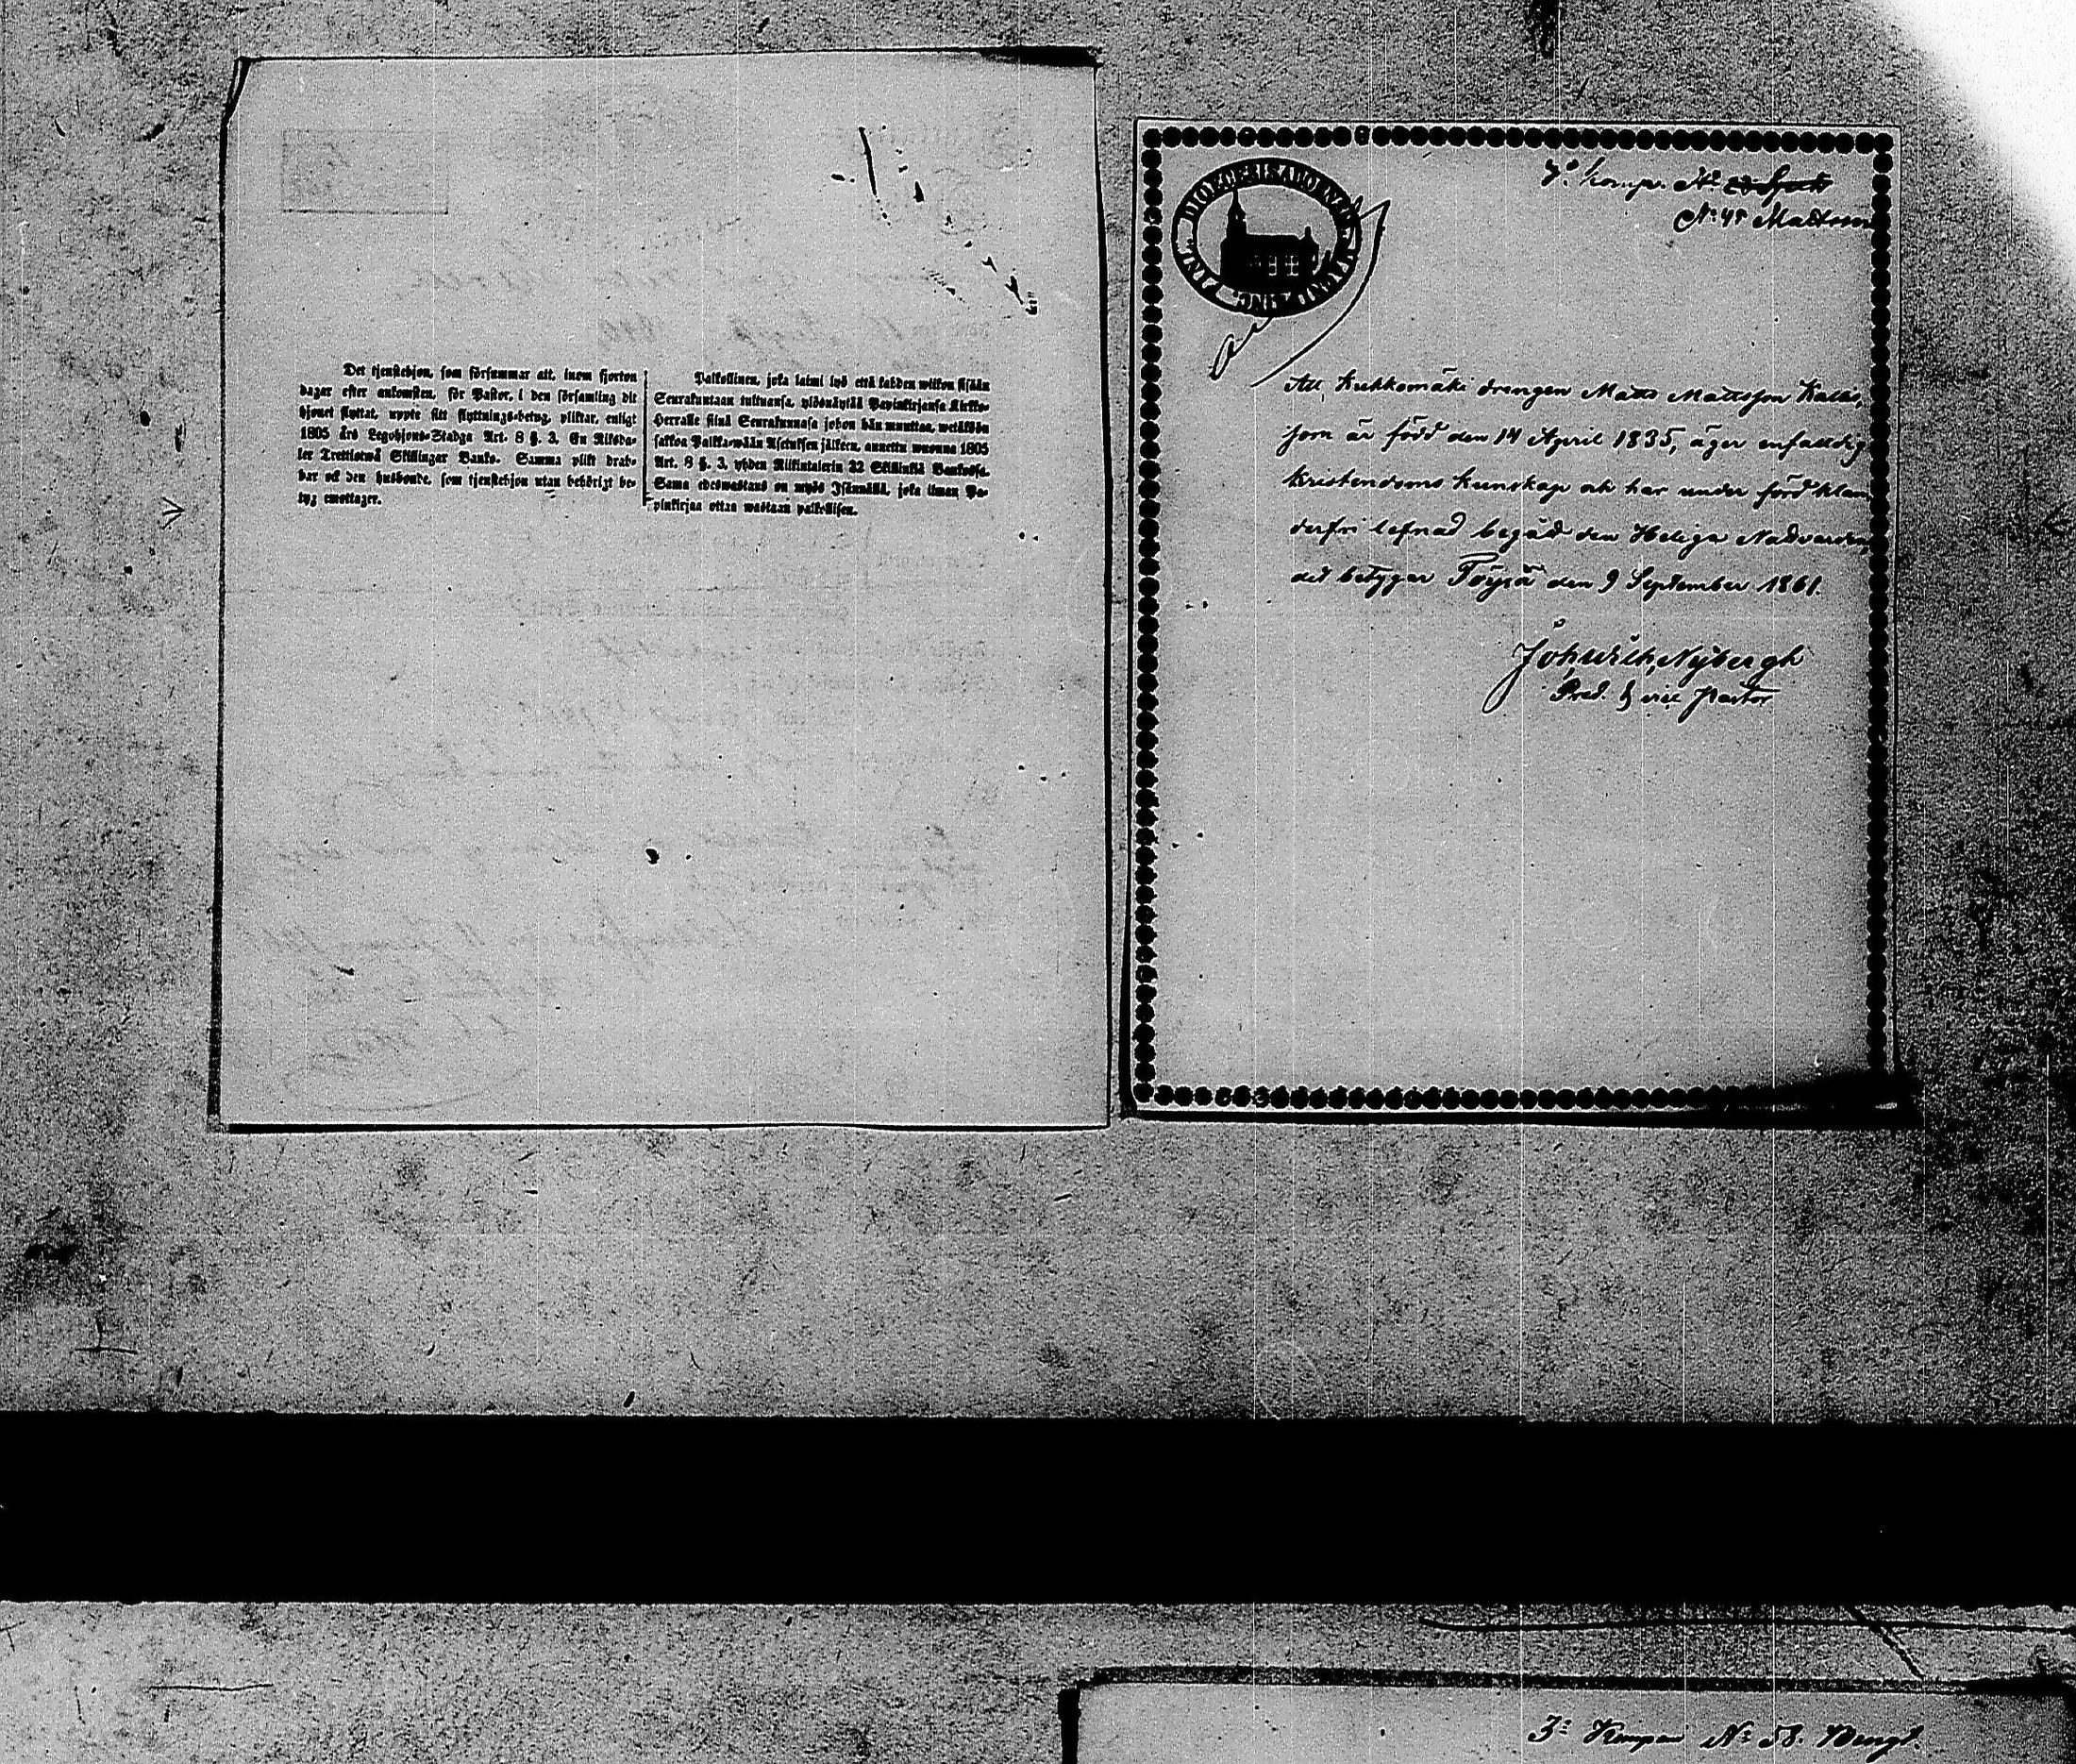 Det tjenstehjon, som försummar att, inom fjorton
dagar efter ankomsten, för Pastor, i den församling dit
hjonet flyttat, uppte sitt flyttnings-betyg, pliktar, enligt
1805 års Legohjons-Stadga Art. 8 §. 3. En Riksda-
ler Trettiotwå Skillingar Banko. Samma plikt drab-
bar ock den husbonde, som tjenstehjon utan behörigt be-
tyg emottager.
Palkollinen, joka laimi lyö että kahden wiikon sisään
Seurakuntaan tultuansa, ylösnäytää Papinkirjansa Kirkko-
Herralle siinä Seurakunnasa johon hän muuttaa, wetäköön
sakkoa Palkkawään Asetuksen jälkeen, annettu wuonna 1805
Art. 8 §. 3, yhden Riikintalerin 32 Skillinkiä Bankosa.
Sama edeswastaus on myös Isännällä, joka ilman Pa-
pinkirjaa ottaa wastaan palkollisen.
Komp. No
No 45 Mattson
Att Kuhkomäki drengen Matts Mattsson
som är född den 14 April 1835, äger enfaldig
kristendoms kunskap och har under förd klan
derfri lefnad begådt den Heliga Nattvarden
det betygar Töysä den 9 September 1861.
Joh. Wilh. Nybergh
Pred. & vice pastor
3e Kompani No 58. Bengt.